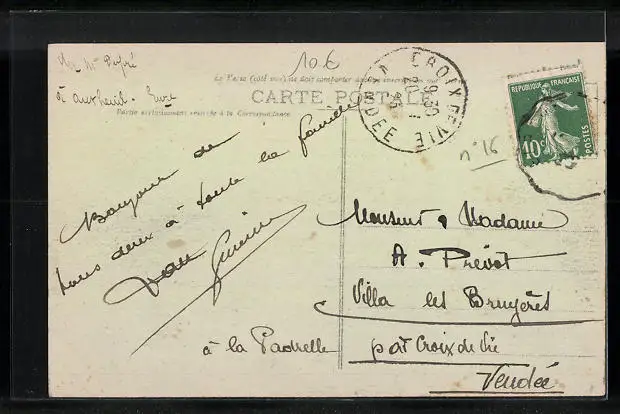 à - Eure
10 €
Le Verso (côté vue) ne doit comporter
CARTE POSTALE
Partie exclusivement réservée à la Correspondance
CROIX DE VIE
VENDEE
REPUBLIQUE FRANÇAISE
10c
POSTES
n° 16
Bonjour de
tous deux à toute la famille
Monsieur & Madame
A. Prévot
Villa les Bruyères
à la Padrelle
par Croix de Vie
Vendée